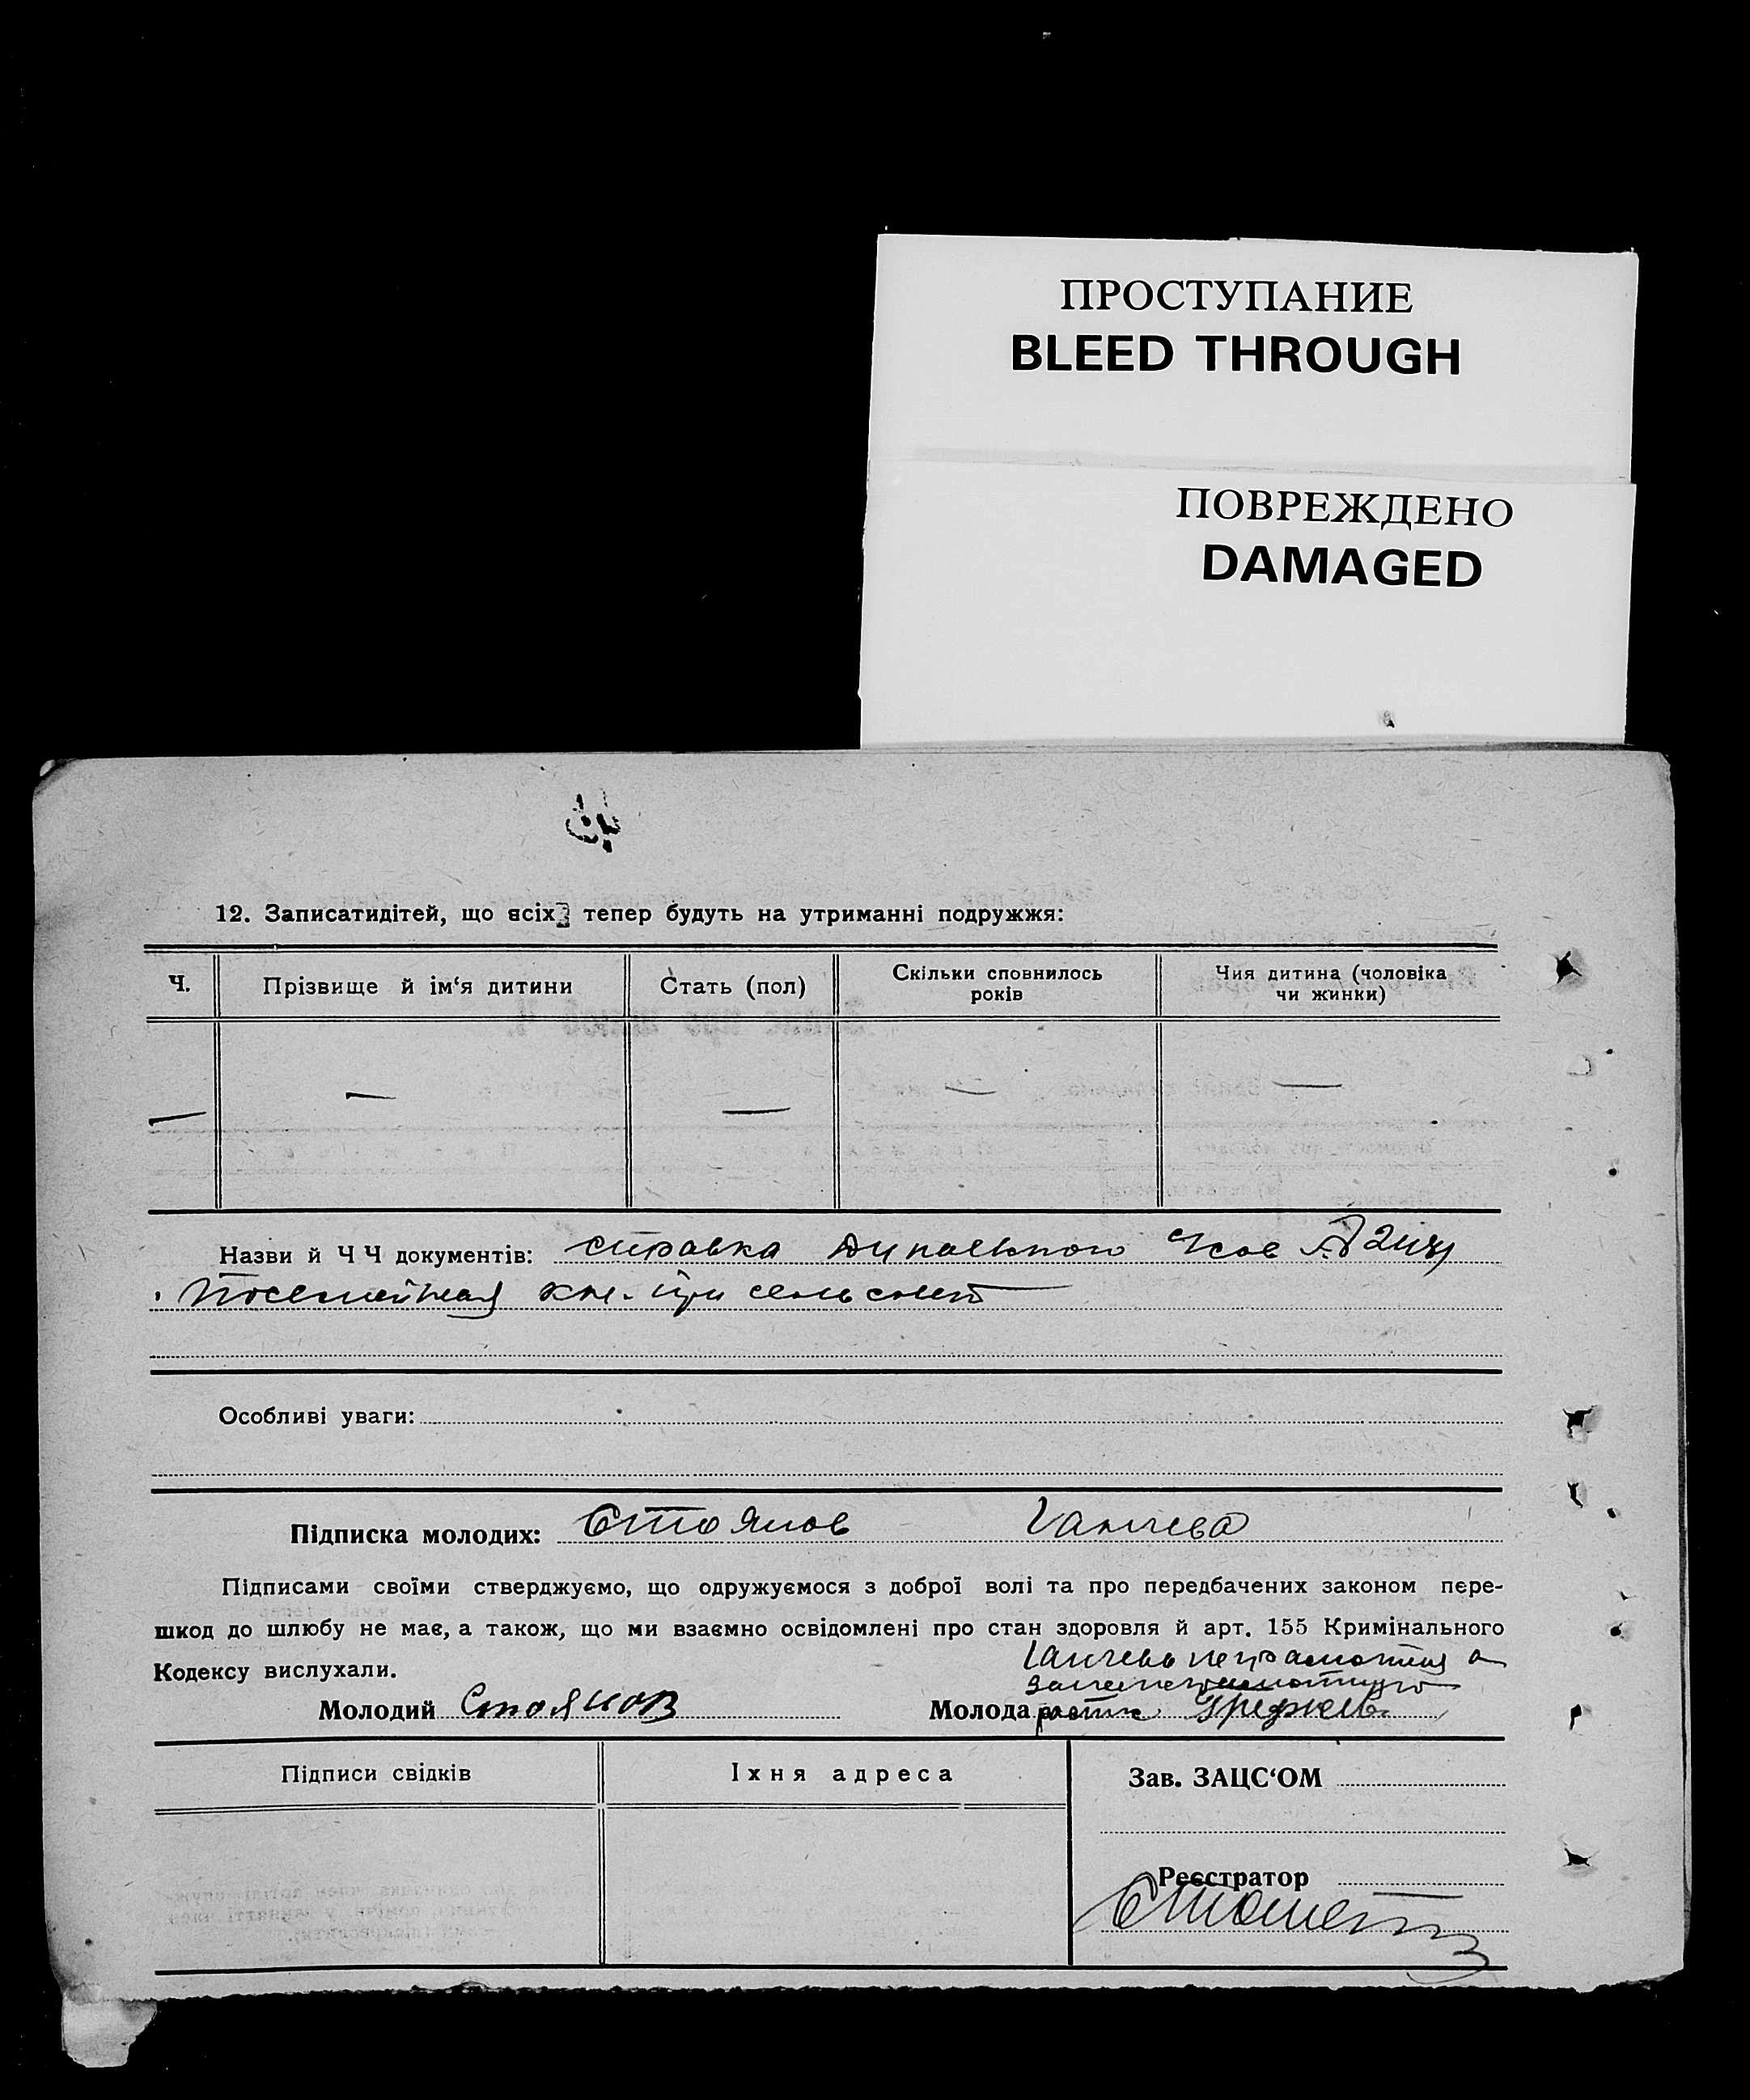 ПРОСТУПАНИЕ
BLEED THROUGH
ПОВРЕЖДЕНО
DAMAGED
12. Записатидітей, що всіх тепер будуть на утриманні подружжя:
Ч. Прізвище й ім‘я дитини Стать (пол) Скільки сповнилось років Чия дитина (чоловіка чи жинки)
— — — — —
Назви й Ч Ч документів: справка
Посемейная кн. при сельсовет
Особливі уваги:
Підписка молодих: Стоянов Ганчева
Підписами своїми стверджуємо, що одружуємося з доброї волі та про передбачених законом пере-
шкод до шлюбу не має, а також, що ми взаємно освідомлені про стан здоровля й арт. 155 Кримінального
Кодексу вислухали.
Ганчева неграмотная а
за неграмотную
Молодий Стоянов Молода
Підписи свідків Їхня адреса Зав. ЗАЦС‘ОМ
Реєстратор